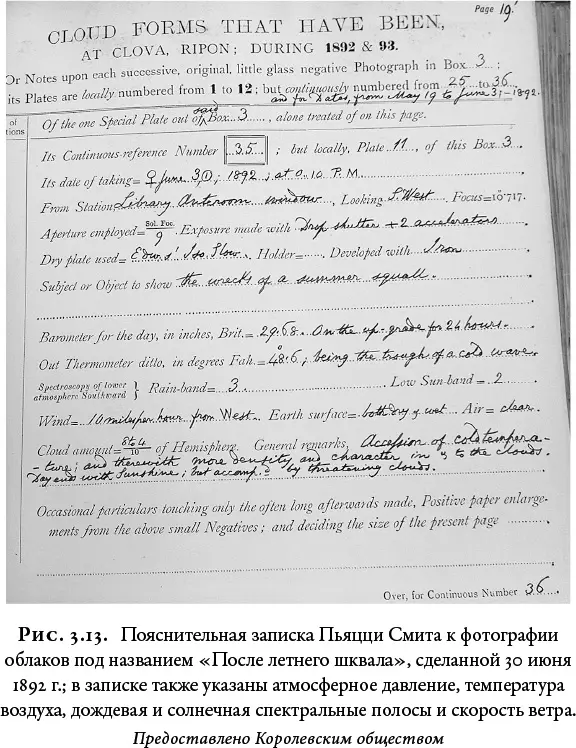 Page 19.
CLOUD FORMS THAT HAVE BEEN,
AT CLOVA, RIPON; DURING 1892 & 93.
Or Notes upon each successive, original, little glass negative Photograph in Box 3;
its Plates are locally numbered from 1 to 12; but continuously numbered from 25 to 36
and for Dates, from May 19 to June 3, 1892.
of
tions
Of the one Special Plate out of said Box 3, alone treated of on this page.
Its Continuous reference Number 35; but locally, Plate 11, of this Box 3.
Its date of taking= ♀ June 3, 1892; at 0.10 P.M.
From Station Library Anteroom window, Looking S. West, Focus=10.717.
Aperture employed= Sol. Foc. / 9 Exposure made with Drop shutter + 2 accelerators
Dry plate used= Edws' Iso. Slow. Holder= , Developed with Iron
Subject or Object to show the wrecks of a summer squall.
Barometer for the day, in inches, Brit.= 29.68. On the up-grade for 24 hours.
Out Thermometer ditto, in degrees Fah.= 48.6; being the trough of a cold wave.
Spectroscopy of lower
atmosphere Southward } Rain-band= 3 Low Sun-band= 2.
Wind= 10 miles per hour from West. Earth surface= both dry & wet. Air= clear.
Cloud amount= 8 & 4 / 10 of Hemisphere. General remarks, Accession of cold tempera-
-ture; and therewith more density and character in & to the clouds.
Day ends with Sunshine; but accomp.d by threatening clouds.
Occasional particulars touching only the often long afterwards made, Positive paper enlarge-
ments from the above small Negatives; and deciding the size of the present page
Over, for Continuous Number 36.
Рис. 3.13. Пояснительная записка Пьяцци Смита к фотографии
облаков под названием «После летнего шквала», сделанной 30 июня
1892 г.; в записке также указаны атмосферное давление, температура
воздуха, дождевая и солнечная спектральные полосы и скорость ветра.
Предоставлено Королевским обществом